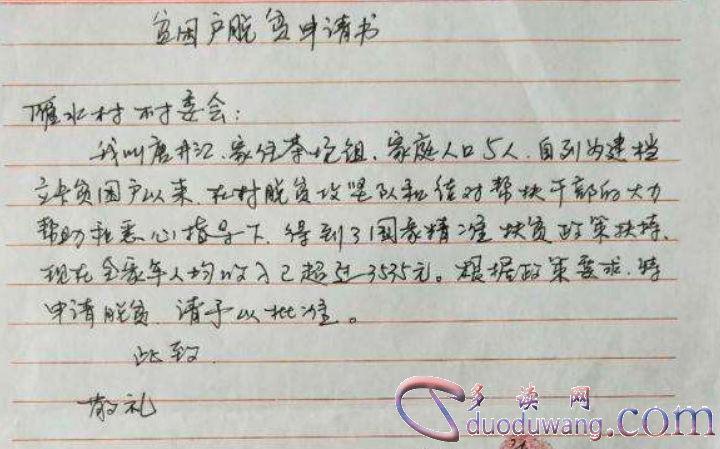 贫困户脱贫申请书
雁水村村委会:
我叫唐井江、家住茶坨组、家庭人口5人、自列为建档
立卡贫困户以来、在村脱贫攻坚队和结对帮扶干部的大力
帮助和悉心指导下、得到了国家精准扶贫政策扶持、
现在全家年人均收入已超过3535元。根据政策要求、特
申请脱贫、请予以批准。
此致
敬礼
多读网
duoduwang.com